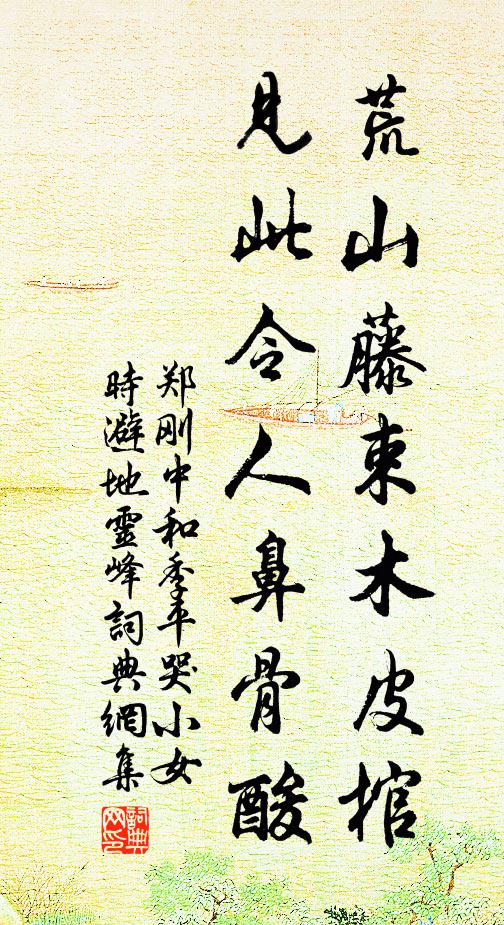 荒山藤束木皮棺
見此令人鼻骨酸
郑刚中和季平哭小女
時避地靈峰詞典網集
詞典
网印